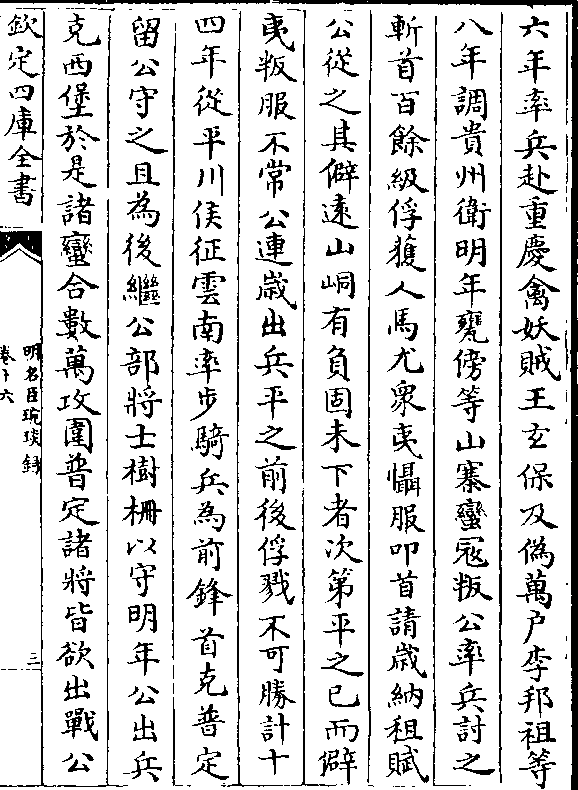 六年率兵赴重慶禽妖賊王玄保及偽萬户李邦祖等
八年調貴州衛明年甕傍等山寨蠻冦叛公率兵討之
斬首百餘級俘獲人馬尤衆夷懾服叩首請歳納租賦
公從之其僻遠山峒有負固未下者次第平之已而僻
夷叛服不常公連歳出兵平之前後俘戮不可勝計十
四年從平川侯征雲南率步騎兵為前鋒首克普定
留公守之且為後繼公部將士樹柵以守明年公出兵
克西堡於是諸蠻合數萬攻圍普定諸將皆欲出戰公
欽定四庫全書
明名臣琬琰録
卷十六
三